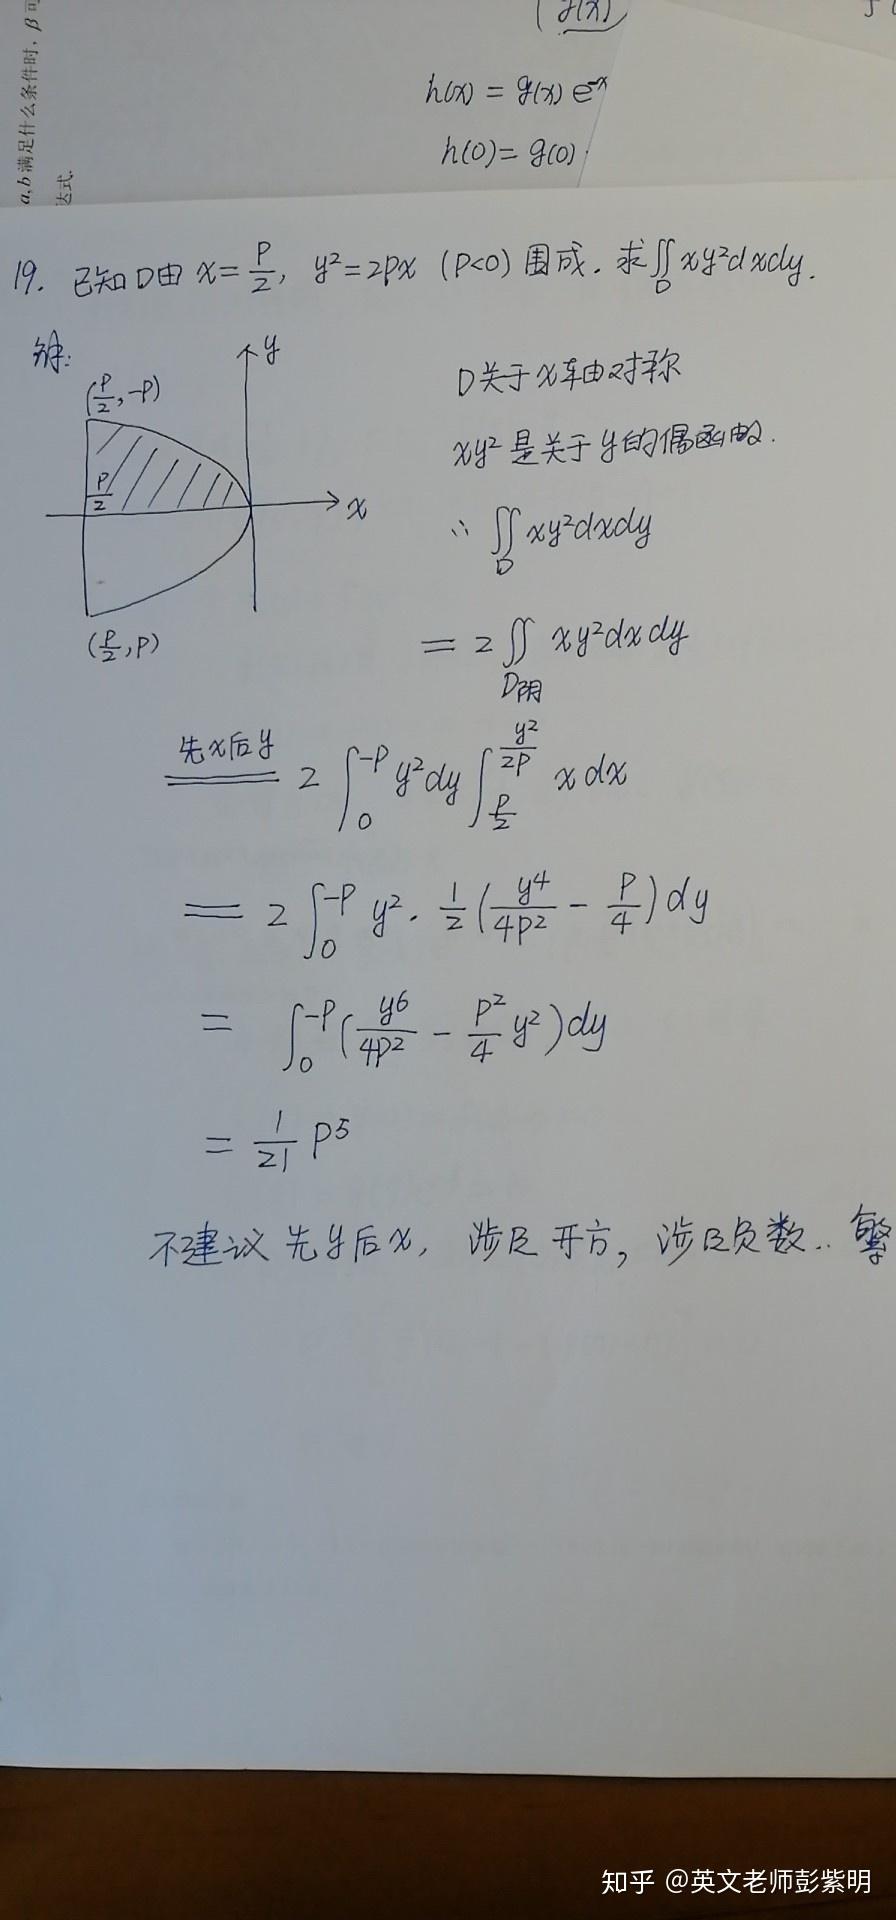 a,b 满足什么条件时, β 可
达式.
g(x)
h(x) = g(x) e^{-x}
h(0) = g(0).
19. 已知 D 由 x = \frac{P}{2}, y² = 2px (P<0) 围成. 求 ∬_D xy²dxdy.
解:
y
(\frac{P}{2}, -P)
\frac{P}{2}
x
(\frac{P}{2}, P)
D关于x轴由对称
xy² 是关于 y 的偶函数.
∴ ∬_D xy²dxdy
= 2 ∬_{D阴} xy²dxdy
先x后y
= 2 ∫_0^{-P} y²dy ∫_{\frac{P}{2}}^{\frac{y²}{2P}} x dx
= 2 ∫_0^{-P} y² · \frac{1}{2} (\frac{y⁴}{4P²} - \frac{P}{4}) dy
= ∫_0^{-P} (\frac{y⁶}{4P²} - \frac{P²}{4} y²) dy
= \frac{1}{21} P⁵
不建议先y后x, 涉及开方, 涉及负数.. 繁
知乎 @英文老师彭紫明